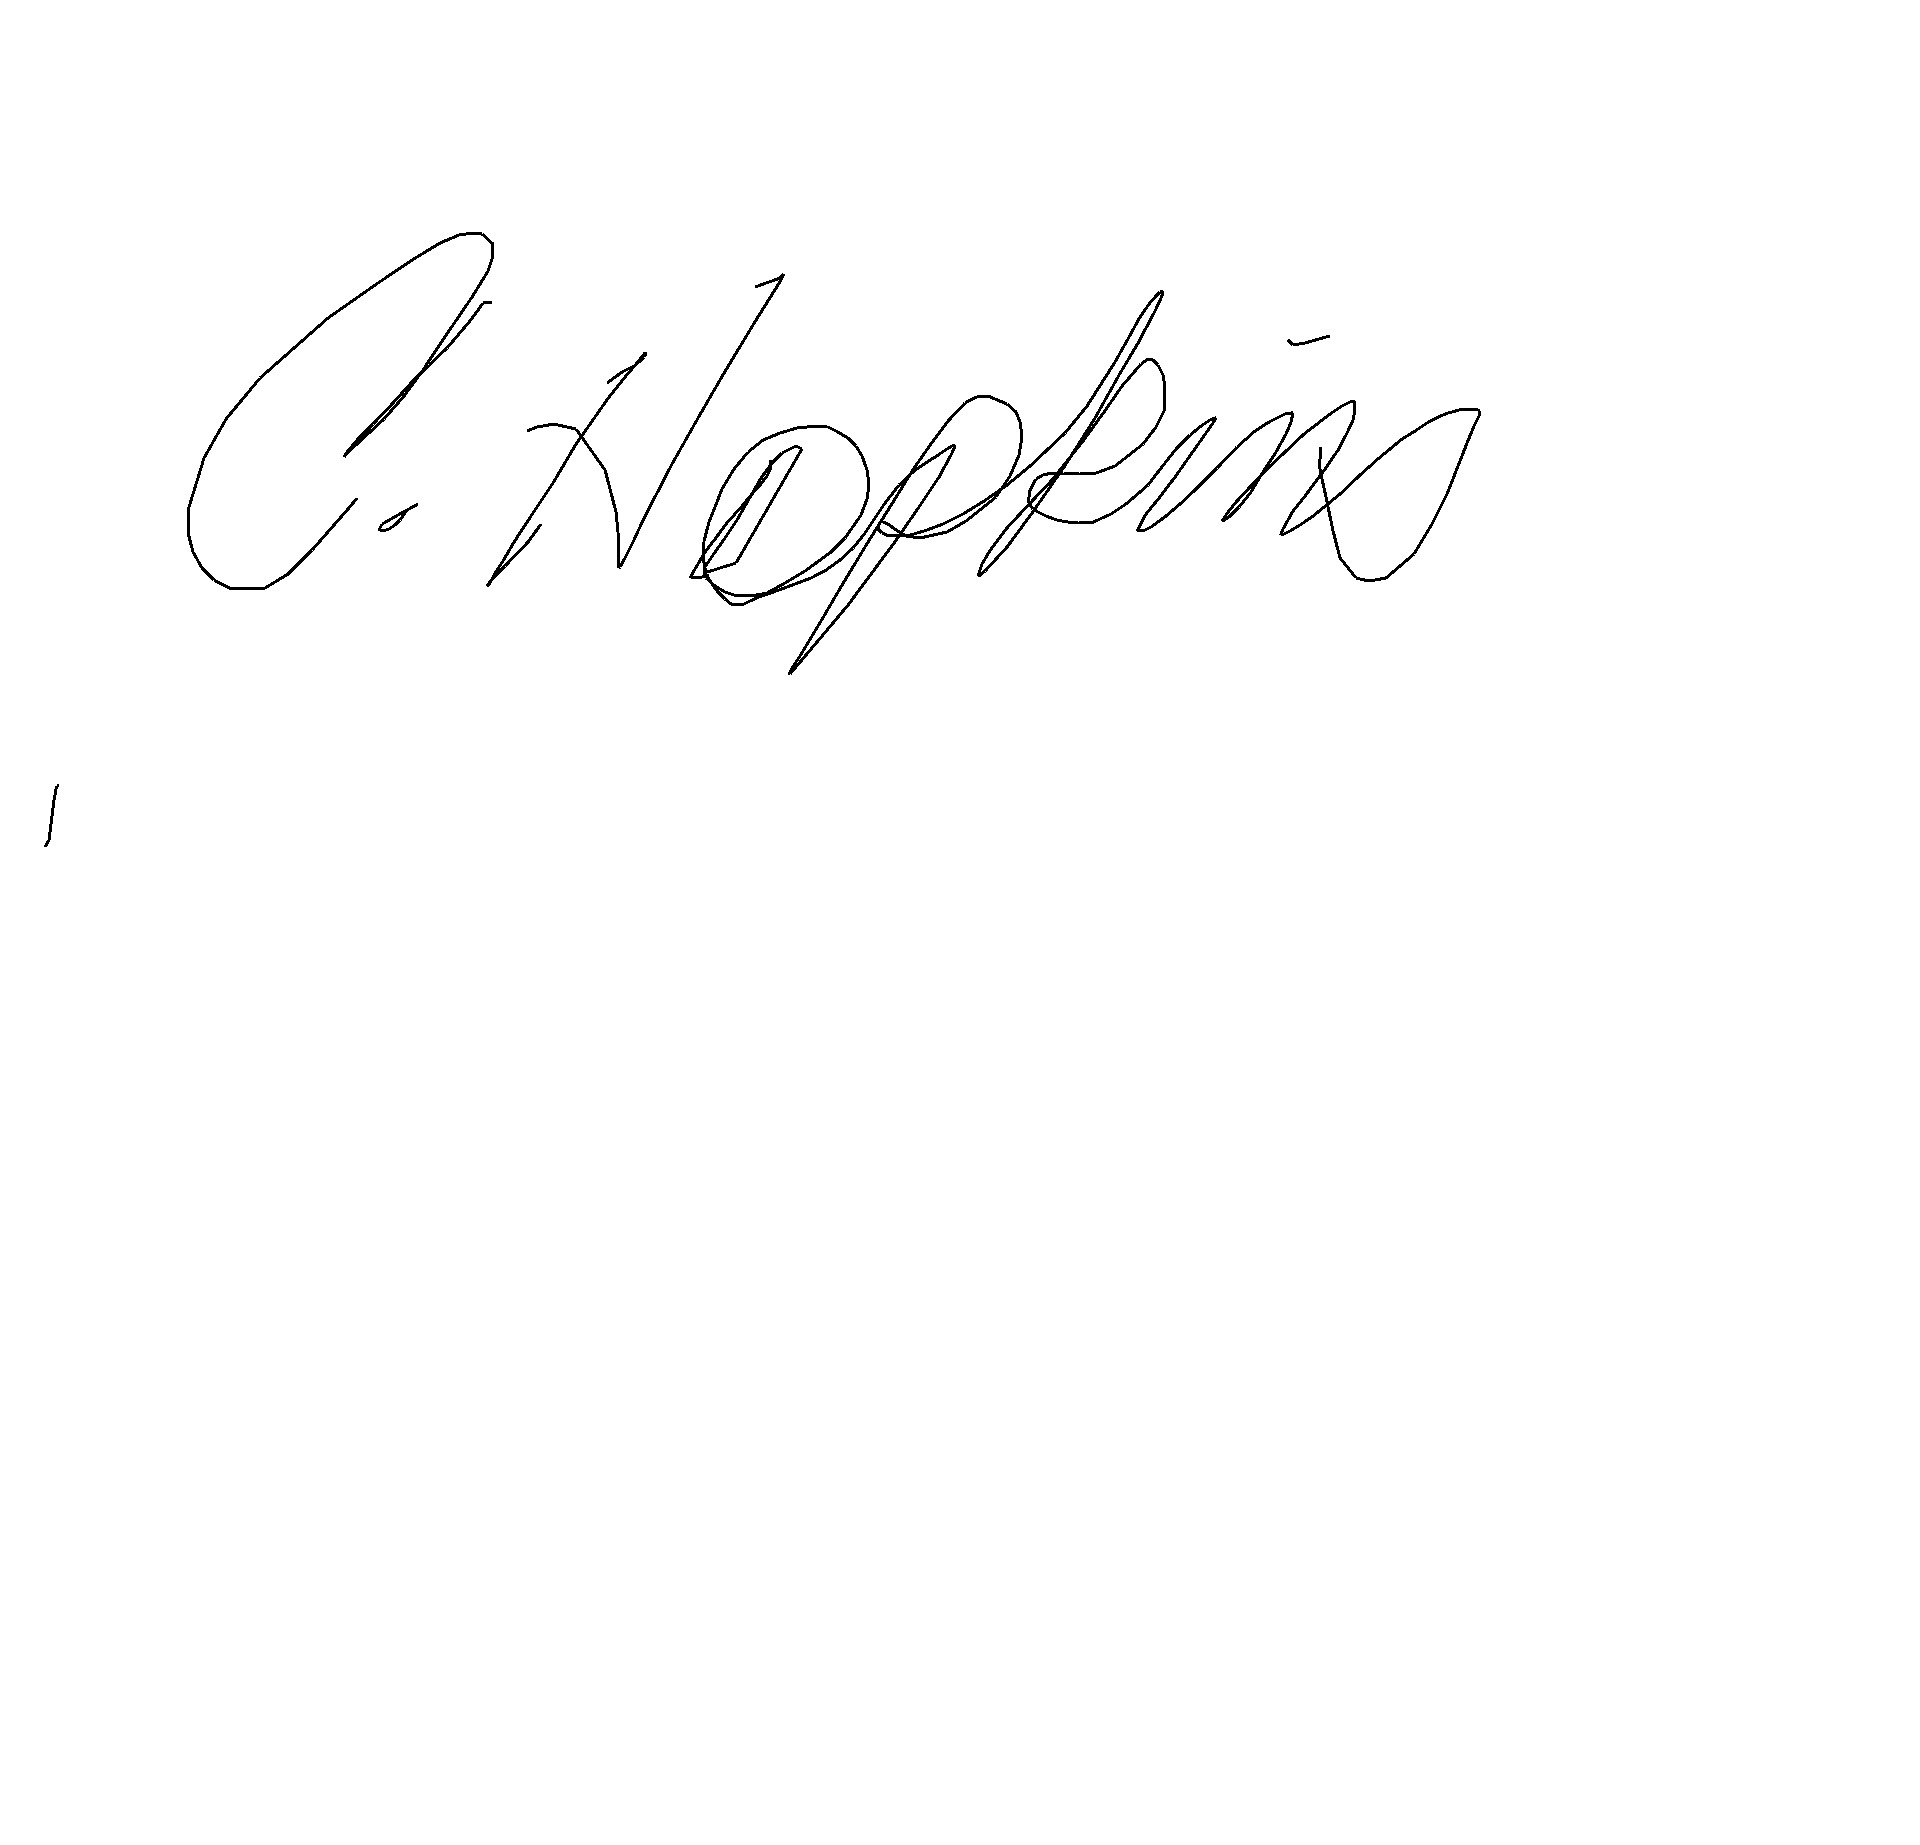 C. Hopkins